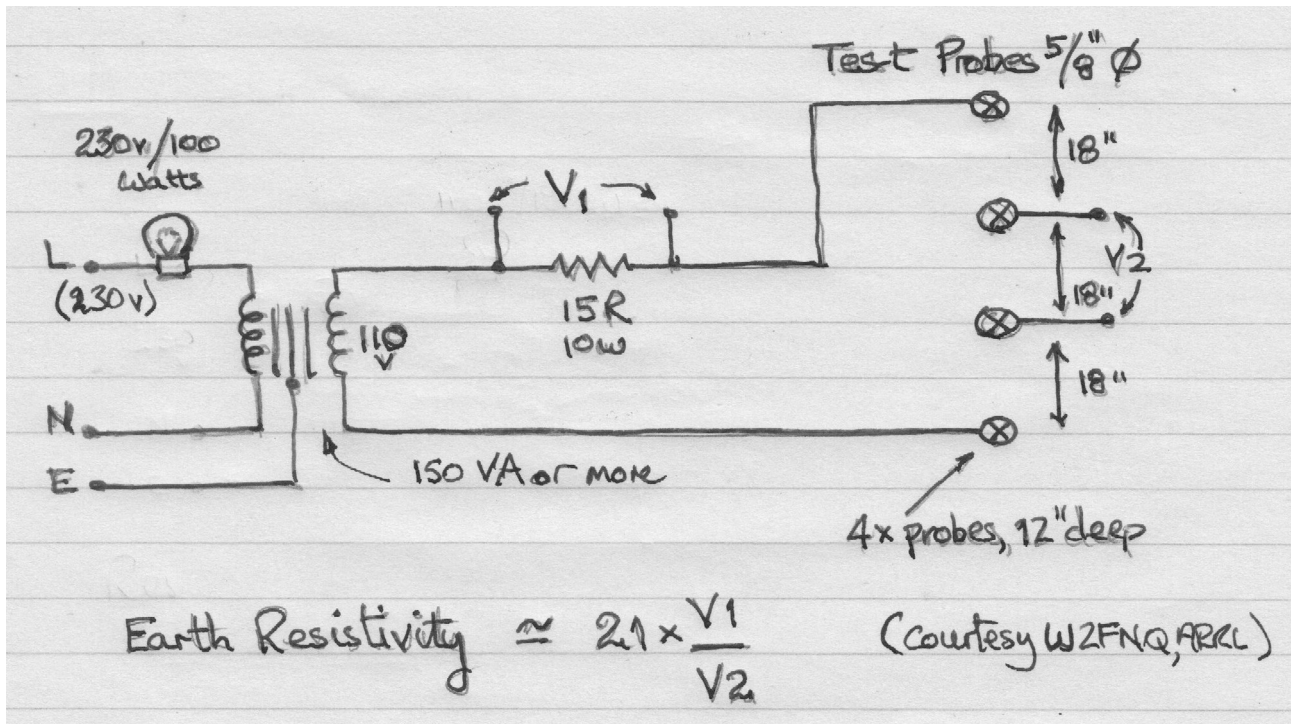 Test Probes 5/8" Ø
230v/100
Watts
V1
18"
L
(230v)
V2
15R
10w
18"
110
V
18"
N
E
150 VA or more
4x probes, 12" deep
Earth Resistivity ≃ 21 x V1
V2
(Courtesy W2FNQ, ARRL)